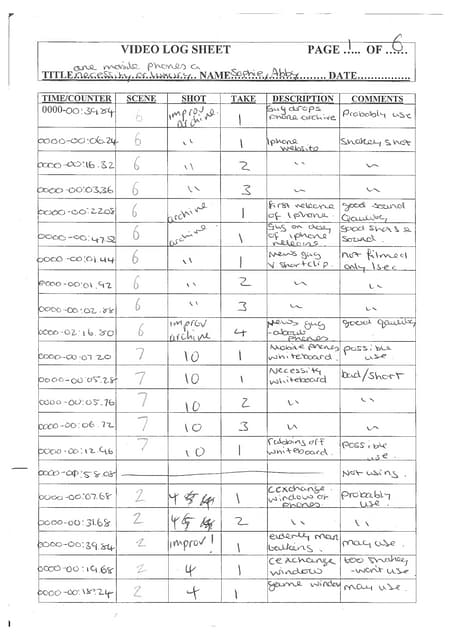 VIDEO LOG SHEET PAGE 1 OF 6
are mobile phones a
TITLE necessity or luxury. NAME Sophie, Abby DATE
TIME/COUNTER SCENE SHOT TAKE DESCRIPTION COMMENTS
0000-00:39.84 6 improv archive 1 Guy drops phone archive Probably use
0000-00:06.24 6 " 1 Iphone website Shakey shot
0000-00:16.32 6 " 2 " "
0000-00:03.36 6 " 3 " "
0000-00:22.08 6 archive 1 First release of Iphone. good sound Quality
0000-00:47.52 6 archive 1 Guy on day of iphone release. Good shots & sound.
0000-00:01.44 6 " 1 News guy v short clip. not filmed only 1sec.
0000-00:01.92 6 " 2 " "
0000-00:02.88 6 " 3 " "
0000-02:16.80 6 improv archive 4 News guy -about phones good quality.
0000-00:07.20 7 10 1 Mobile phones whiteboard possible use
0000-00:05.28 7 10 1 Necessity whiteboard bad/short
0000-00:05.76 7 10 2 " "
0000-00:06.72 7 10 3 " "
0000-00:12.96 7 10 1 rubbing off whiteboard. possible use.
0000- Not using.
0000-00:07.68 2 4 1 Cexchange window of phones Probably use.
0000-00:31.68 2 4 2 " "
0000-00:39.84 2 improv! 1 elderly man talking. may use.
0000-00:19.68 2 4 1 Cexchange window too shakey -wont use
0000-00:18.24 2 4 1 game window may use.